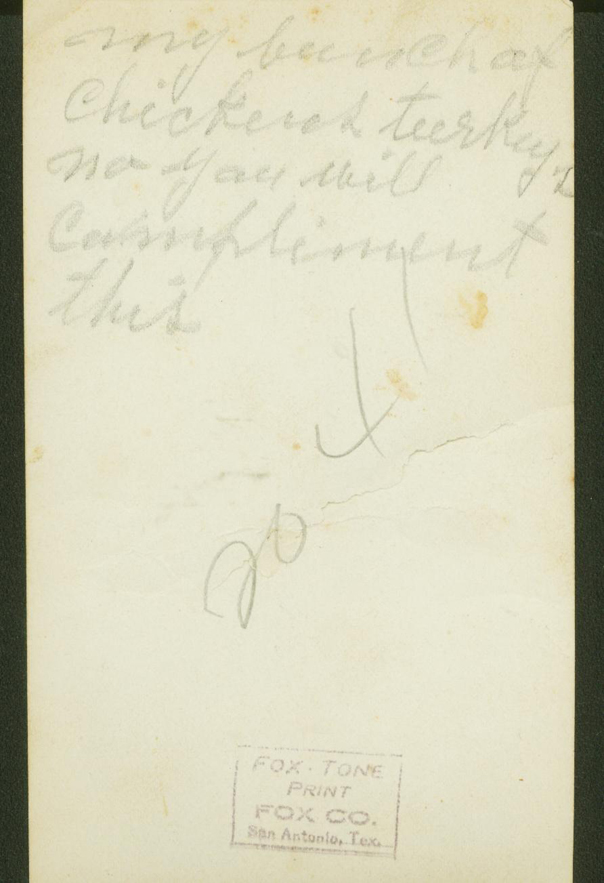 my bunch of
Chickens & turkeys
no you will
Compliment
this
20
FOX-TONE
PRINT
FOX CO.
San Antonio, Tex.